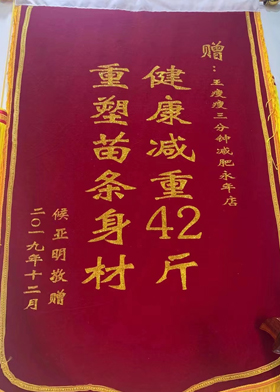 赠：王瘦瘦三分钟减肥永年店
健康减重42斤
重塑苗条身材
候亚明敬赠
二〇一九年十二月